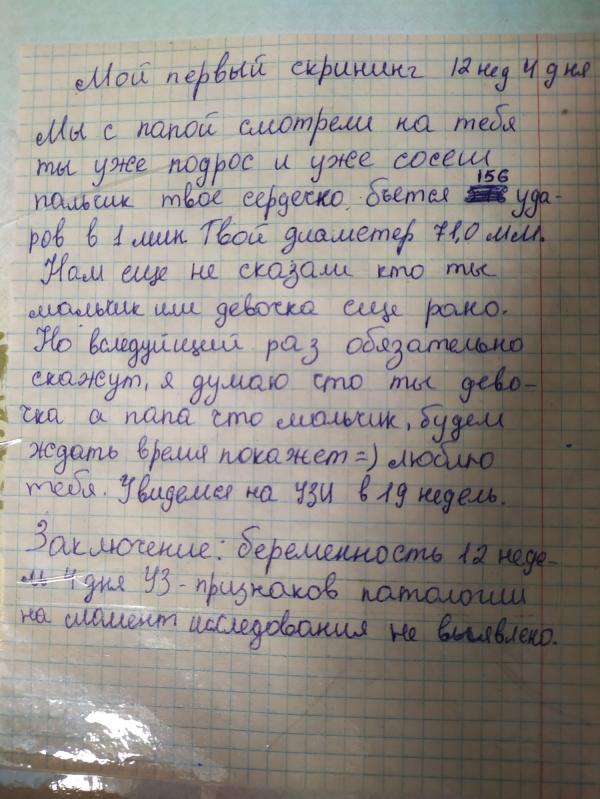 Мой первый скрининг 12 нед 4 дня
Мы с папой смотрели на тебя
ты уже подрос и уже сосеш
пальчик твое сердечко бьется 156 уда-
ров в 1 мин. Твой диаметер 71,0 мм.
Нам еще не сказали кто ты
мальчик или девочка еще рано.
Но вследуйищий раз обязательно
скажут, я думаю что ты дево-
чка а папа что мальчик, будем
ждать время покажет =) люблю
тебя. Увидемся на УЗИ в 19 недель.
Заключение: беременность 12 неде-
ль 4 дня УЗ - признаков патологии
на момент исследования не выявлено.